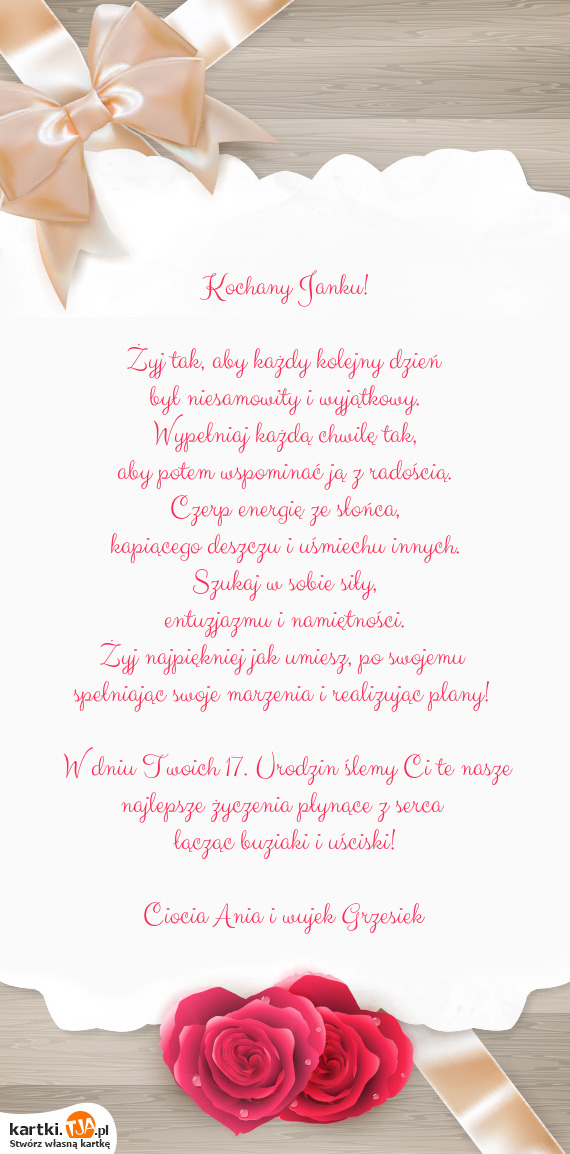 Kochany Janku!
Żyj tak, aby każdy kolejny dzień
był niesamowity i wyjątkowy.
Wypełniaj każdą chwilę tak,
aby potem wspominać ją z radością.
Czerp energię ze słońca,
kapiącego deszczu i uśmiechu innych.
Szukaj w sobie siły,
entuzjazmu i namiętności.
Żyj najpiękniej jak umiesz, po swojemu
spełniając swoje marzenia i realizując plany!
W dniu Twoich 17. Urodzin ślemy Ci te nasze
najlepsze życzenia płynące z serca
łącząc buziaki i uściski!
Ciocia Ania i wujek Grzesiek
kartki.TJA.pl
Stwórz własną kartkę